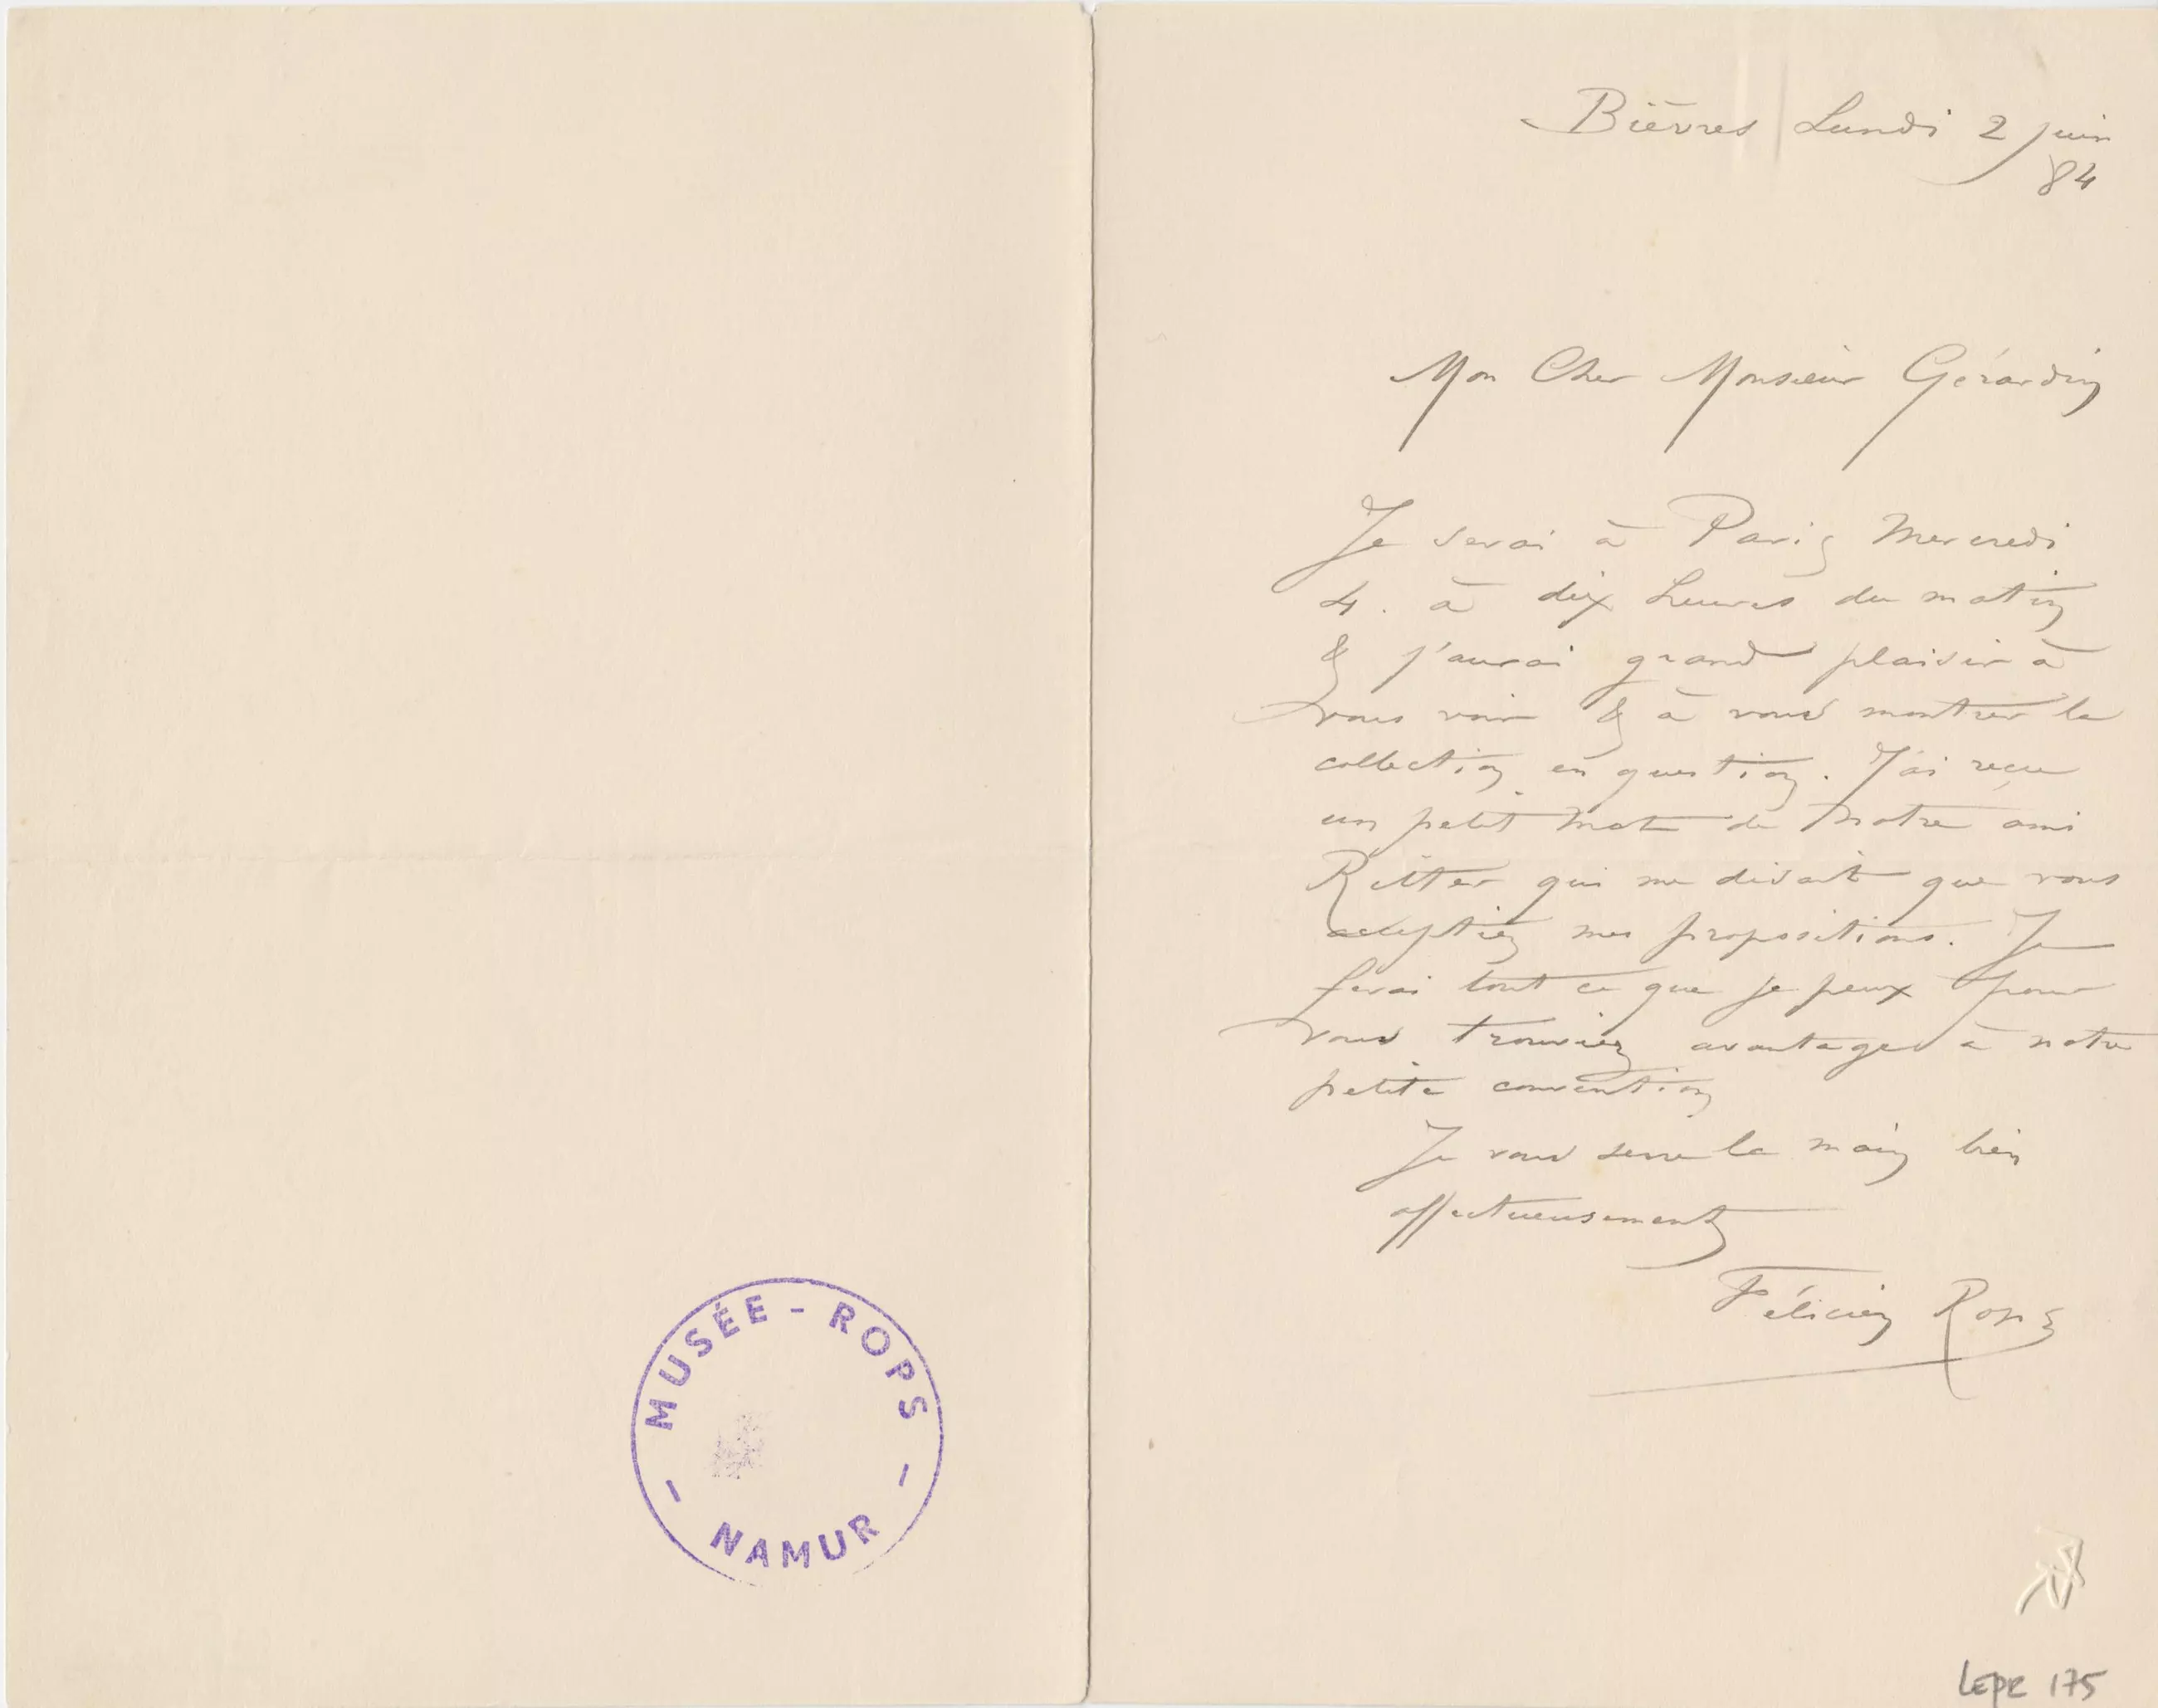 MUSÉE - ROPS
- NAMUR -
Bièvres Lundi 2 juin
84
Mon Cher Monsieur Gérardin
Je serai à Paris Mercredi
4. à dix heures du matin
& j'aurai grand plaisir à
vous voir & à vous montrer la
collection en question. J'ai reçu
un petit mot de notre ami
Ritter qui me disait que vous
acceptiez mes propositions. Je
ferai tout ce que je peux pour
vous trouviez avantages à notre
petite convention
Je vous serre la main bien
affectueusement
Félicien Rops
LEPR 175